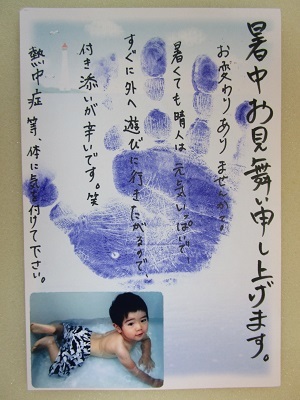 暑中お見舞い申し上げます。
お変わりありませんか。
暑くても晴人は元気いっぱいで、
すぐに外へ遊びに行きたがるので、
付き添いが辛いです。笑
熱中症等、体に気を付けて下さい。